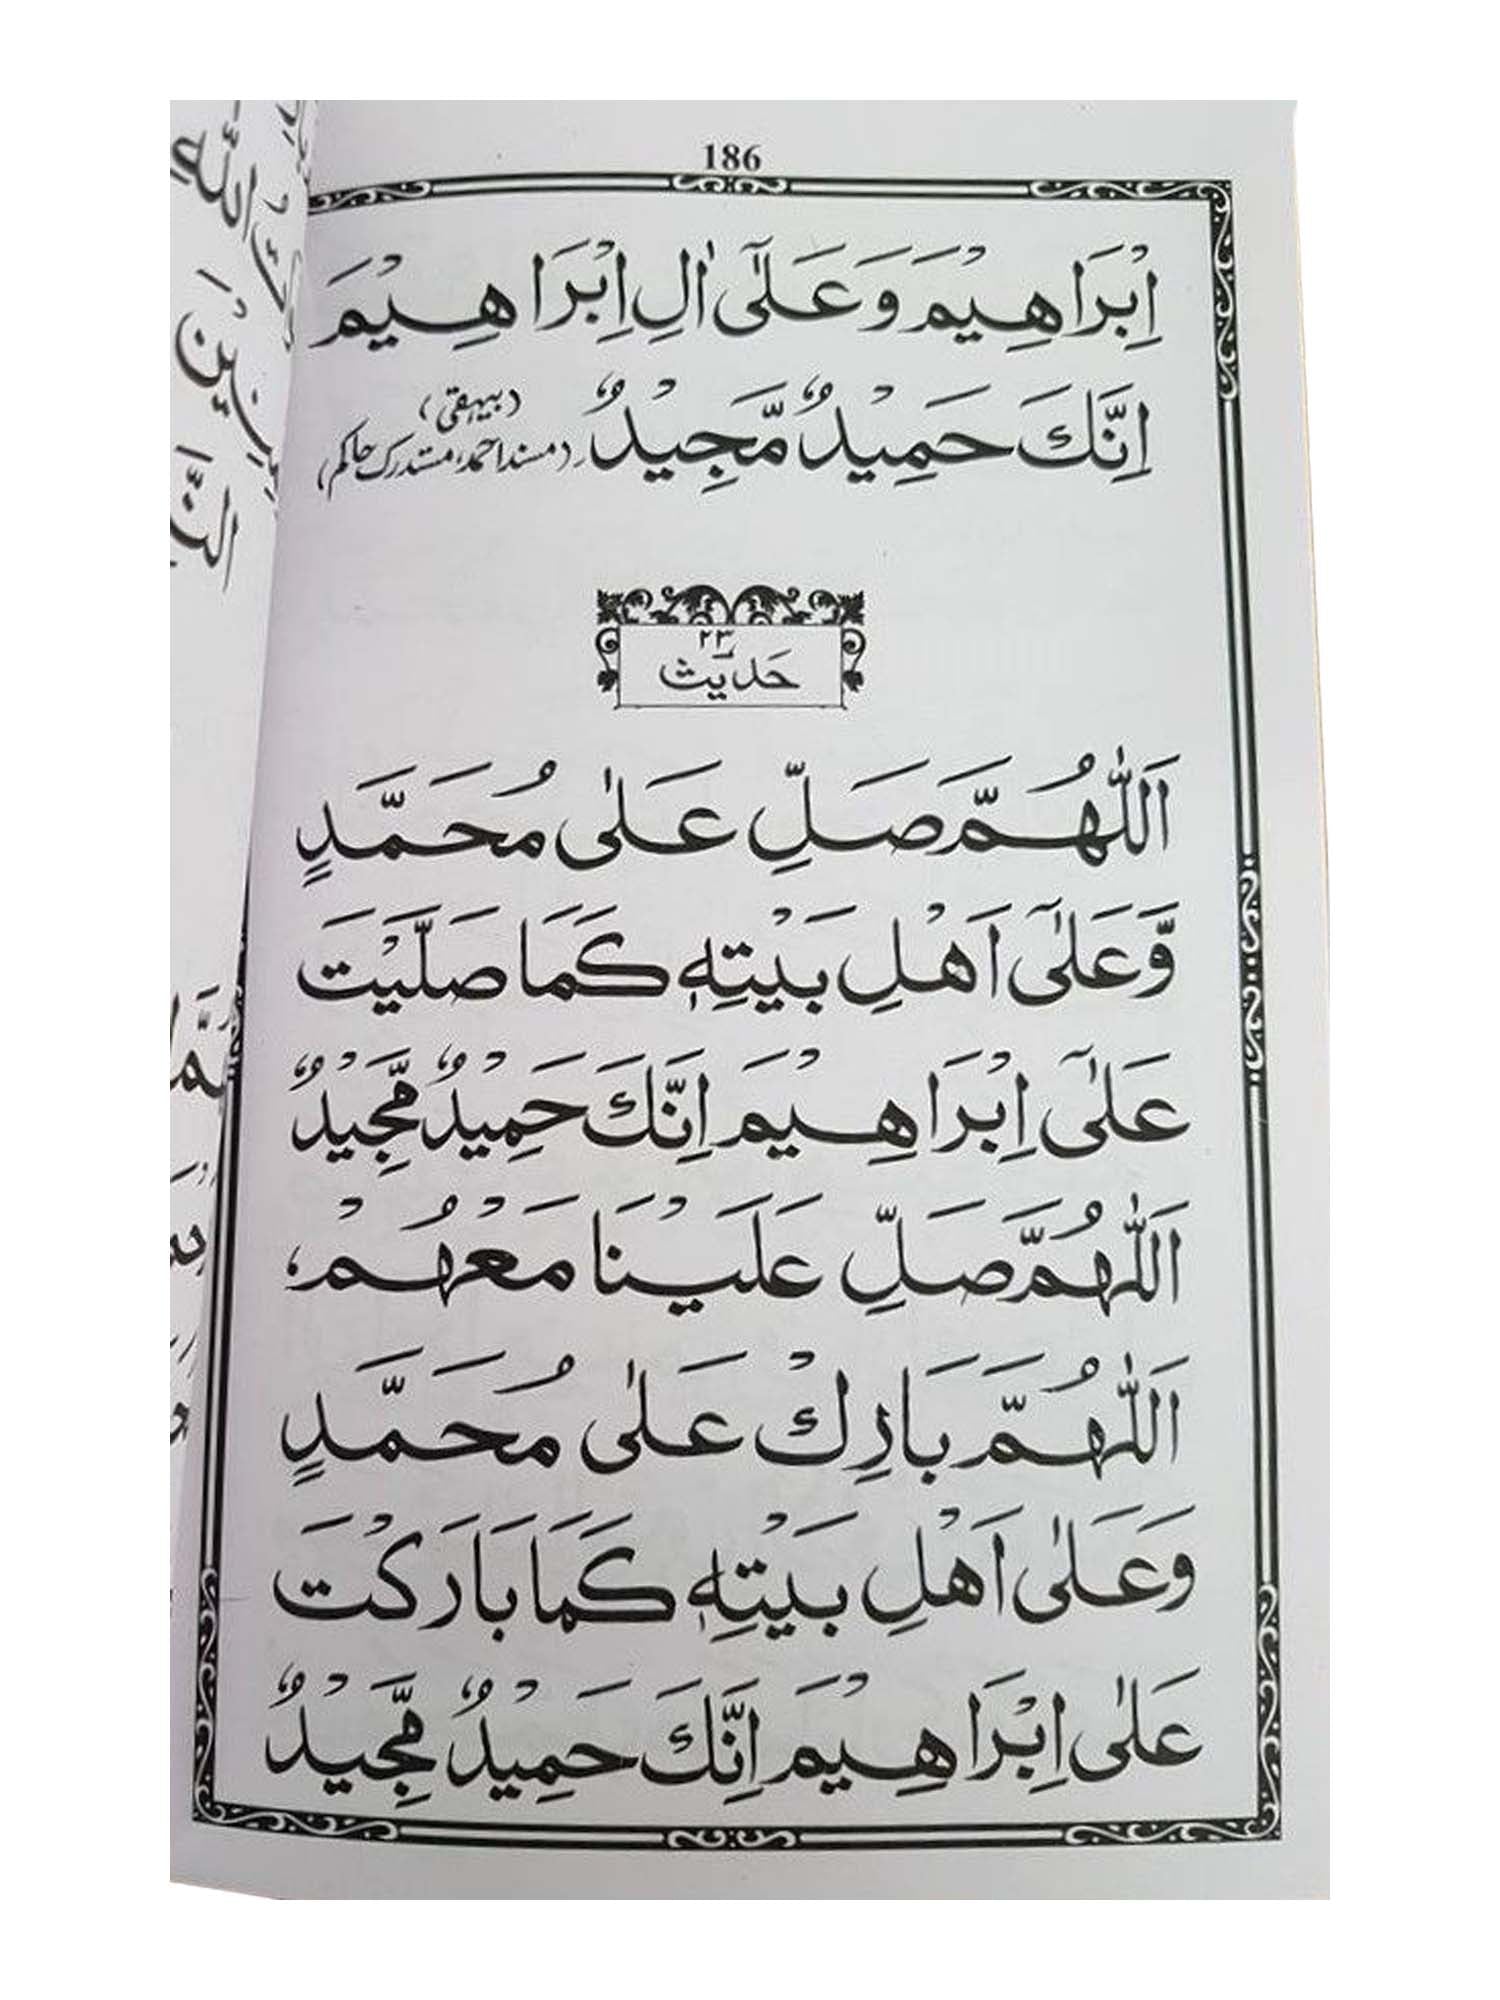 186
اِبْرَاهِيْمَ وَعَلٰٓى اٰلِ اِبْرَاهِيْمَ
اِنَّكَ حَمِيْدٌ مَّجِيْدٌ (بيهقی)
(مسند احمد، مستدرک حاکم)
حَدِيْث ٢٣
اَللّٰهُمَّ صَلِّ عَلٰى مُحَمَّدٍ
وَّعَلٰٓى اَهْلِ بَيْتِهٖ كَمَا صَلَّيْتَ
عَلٰٓى اِبْرَاهِيْمَ اِنَّكَ حَمِيْدٌ مَّجِيْدٌ
اَللّٰهُمَّ صَلِّ عَلَيْنَا مَعَهُمْ،
اَللّٰهُمَّ بَارِكْ عَلٰى مُحَمَّدٍ
وَعَلٰى اَهْلِ بَيْتِهٖ كَمَا بَارَكْتَ
عَلٰى اِبْرَاهِيْمَ اِنَّكَ حَمِيْدٌ مَّجِيْدٌ